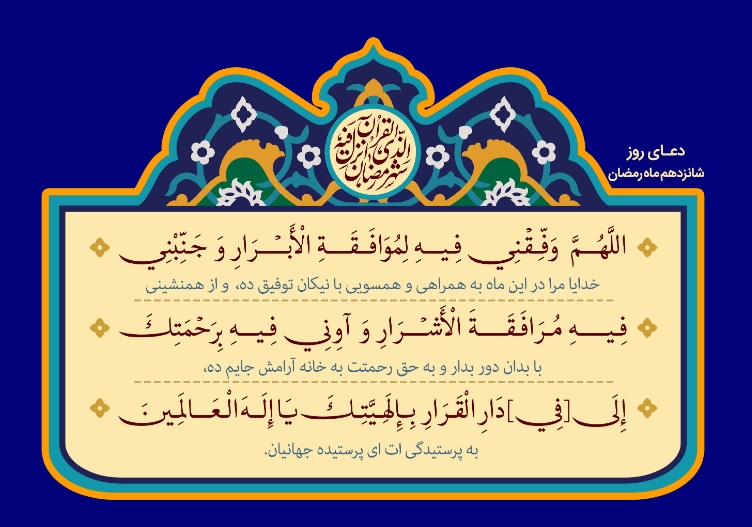 شهر رمضان الذی انزل فیه القرآن
دعای روز
شانزدهم ماه رمضان
اللَّهُمَّ وَفِّقْنِي فِيهِ لِمُوَافَقَةِ الْأَبْرَارِ وَ جَنِّبْنِي
خدایا مرا در این ماه به همراهی و همسویی با نیکان توفیق ده، و از همنشینی
فِيهِ مُرَافَقَةَ الْأَشْرَارِ وَ آوِنِي فِيهِ بِرَحْمَتِكَ
با بدان دور بدار و به حق رحمتت به خانه آرامش جایم ده،
إِلَى [فِي] دَارِ الْقَرَارِ بِإِلَهِيَّتِكَ يَا إِلَهَ الْعَالَمِينَ
به پرستیدگی ات ای پرستیده جهانیان.